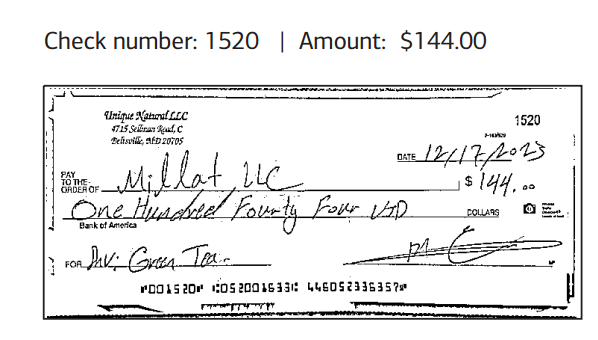 Check number: 1520 | Amount: $144.00
Unique Natural LLC
4715 Sellman Road, C
Beltsville, MD 20705
1520
DATE 12/17/2023
PAY
TO THE
ORDER OF Millat LLC $ 144.00
One Hundred Fourty Four USD DOLLARS
Bank of America
FOR Inv: Green Tea
⑈001520⑈ ⑆052001633⑆ 446052336357⑈